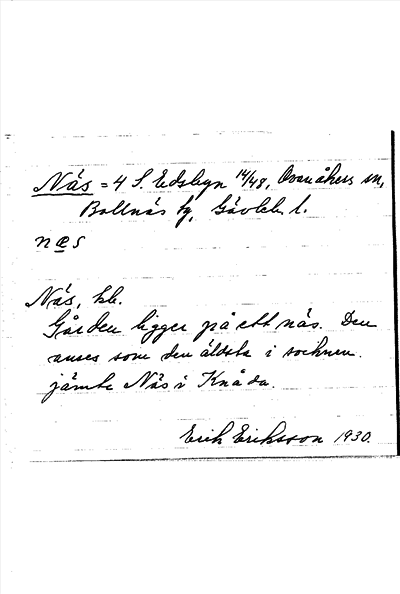 Näs = 4 S. Edsbyn 14/48, Ovanåkers sn,
Bollnäs tg, Gävleb. l.
næs
Näs, bb.
Gården ligger på ett näs. Den
anses som den äldsta i socknen
jämte Näs i Knåda.
Erik Eriksson 1930.